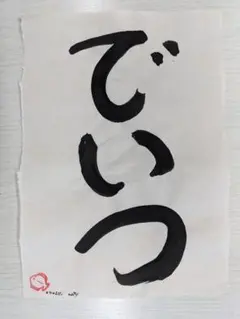 でいつ